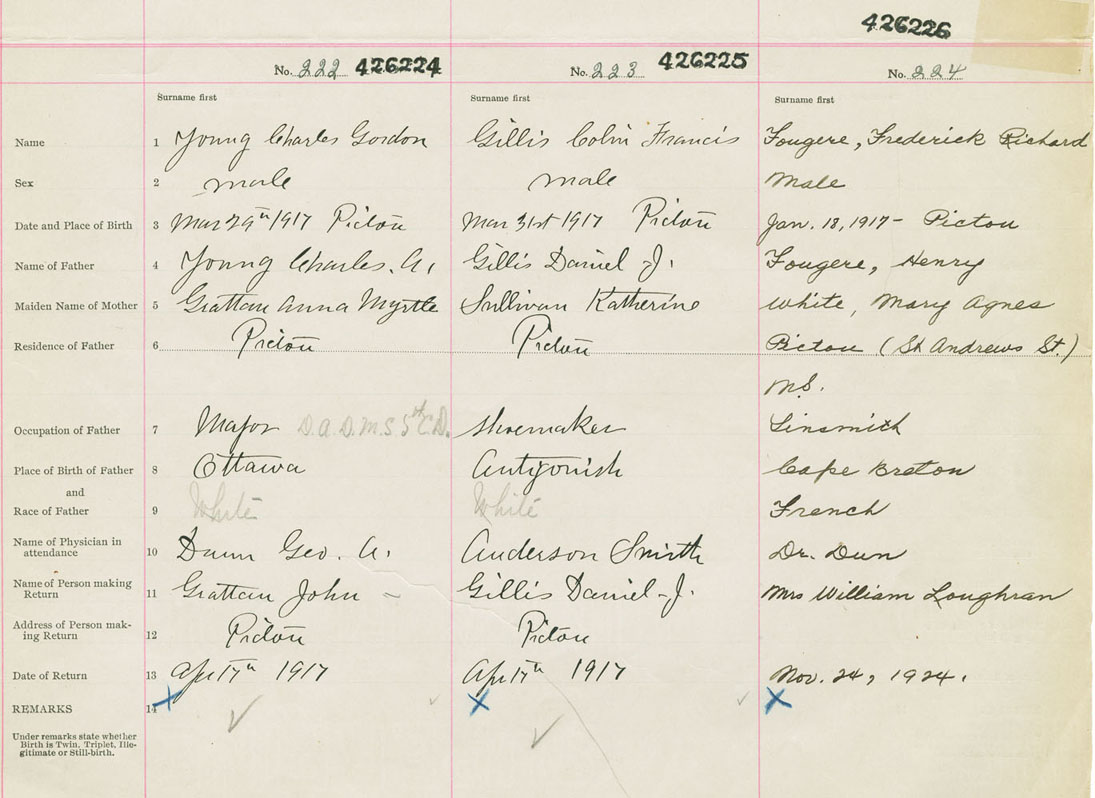 426226
No. 222 426224 No. 223 426225 No. 224
Surname first Surname first Surname first
Name 1 Young Charles Gordon Gillis Colin Francis Fougere, Frederick Richard
Sex 2 male male Male
Date and Place of Birth 3 Mar 29th 1917 Pictou Mar 31st 1917 Pictou Jan. 18, 1917 - Pictou
Name of Father 4 Young Charles. A. Gillis Daniel J. Fougere, Henry
Maiden Name of Mother 5 Grattan Anna Myrtle Sullivan Katherine White, Mary Agnes
Residence of Father 6 Pictou Pictou Pictou (St. Andrews St.)
N.S.
Occupation of Father 7 Major D.A.D.M.S 5th C.D. Shoemaker Tinsmith
Place of Birth of Father 8 Ottawa Antigonish Cape Breton
and
Race of Father 9 White White French
Name of Physician in
attendance 10 Dunn Geo. A. Anderson Smith Dr. Dun
Name of Person making
Return 11 Grattan John - Gillis Daniel-J. Mrs William Loughran
Address of Person mak-
ing Return 12 Pictou Pictou
Date of Return 13 Apr 17th 1917 Apr 17th 1917 Nov. 24, 1924.
REMARKS 14
Under remarks state whether
Birth is Twin, Triplet, Ille-
gitimate or Still-birth.